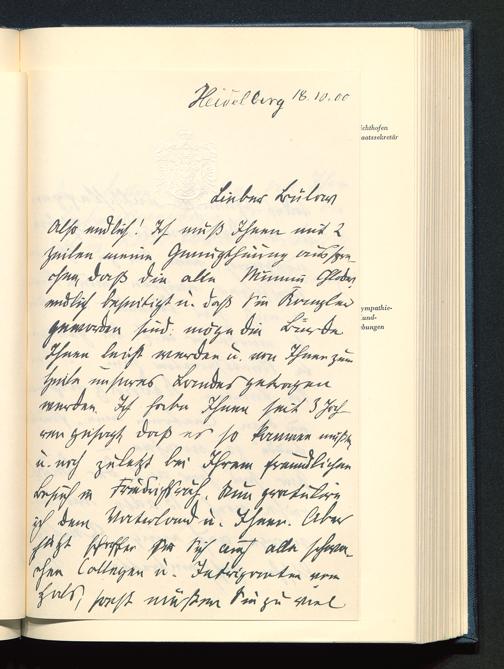 Heidelberg 18.10.00
ichthofen
aatssekretär
Lieber Bülow
Also endlich! Ich muß Ihnen mit 2
Zeilen meine Genugthuung ausspre-
chen, daß die alte Mumie Chlodwig
endlich beseitigt u. daß Sie Kanzler
geworden sind: möge die Bürde
ympathie-
und-
bungen
Ihnen leicht werden u. von Ihnen zum
Heile unseres Landes getragen
werden. Ich habe Ihnen seit 3 Jah-
ren gesagt daß es so kommen müßte
u. noch zuletzt bei Ihrem freundlichen
Besuch in Friedrichsruh. Nun gratulire
ich dem Vaterland u. Ihnen. Aber
jetzt schaffen Sie Sich auch alle schwa-
chen Collegen u. Intriganten vom
Hals, sonst müßten Sie zu viel